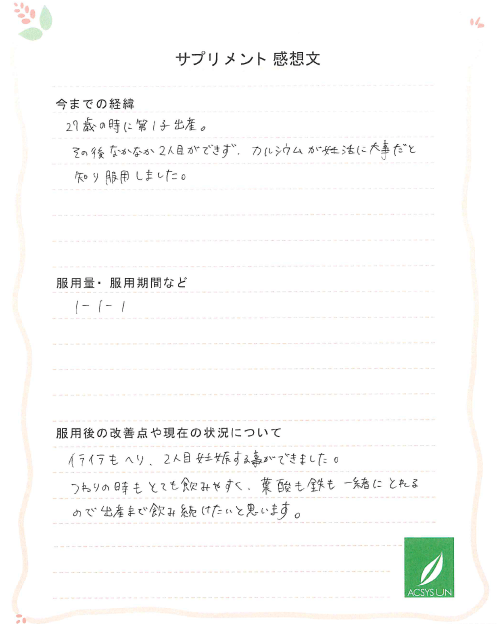 サプリメント 感想文
今までの経緯
27歳の時に第1子出産。
その後なかなか2人目ができず、カルシウムが妊活に大事だと
知り服用しました。
服用量・服用期間など
1-1-1
服用後の改善点や現在の状況について
イライラもへり、2人目妊娠する事ができました。
つわりの時もとても飲みやすく、葉酸も鉄も一緒にとれる
ので出産まで飲み続けたいと思います。
ACSYS UN